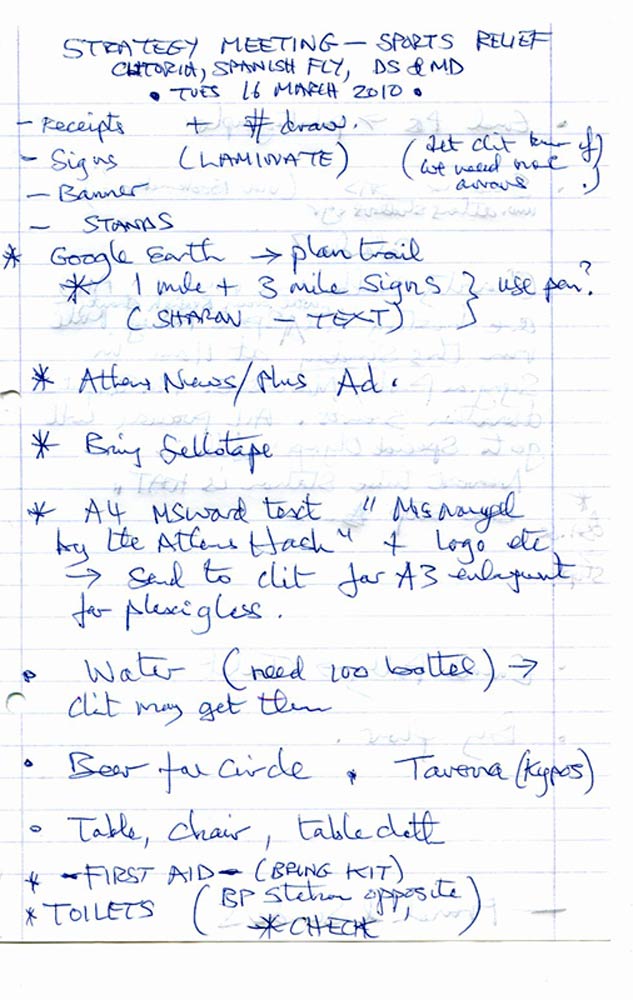 STRATEGY MEETING – SPORTS RELIEF
CLITORIA, SPANISH FLY, DS & MD
• TUES 16 MARCH 2010 •
– Receipts + # draw.
– Signs (LAMINATE) (Let clit know if
we need more
arrows.)
– Banner
– STANDS
* Google Earth → plan trail
* 1 mile + 3 mile signs } use pen?
(SHARON – TEXT)
* Athens News/Plus Ad.
* Bring Sellotape
* A4 MSWord text "
by the Athens Hash" + Logo etc
→ send to clit for A3 enlargment
for plexigless.
• Water (need 100 bottles) →
clit may get them
• Beer for Circle • Taverna (Kypos)
• Table, chair, table cloth
* – FIRST AID – (BRING KIT)
* TOILETS (BP Station opposite)
* CHECK